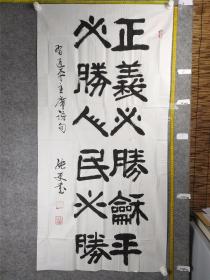 正義必勝龢平
必勝人民必勝
習近平主席語句